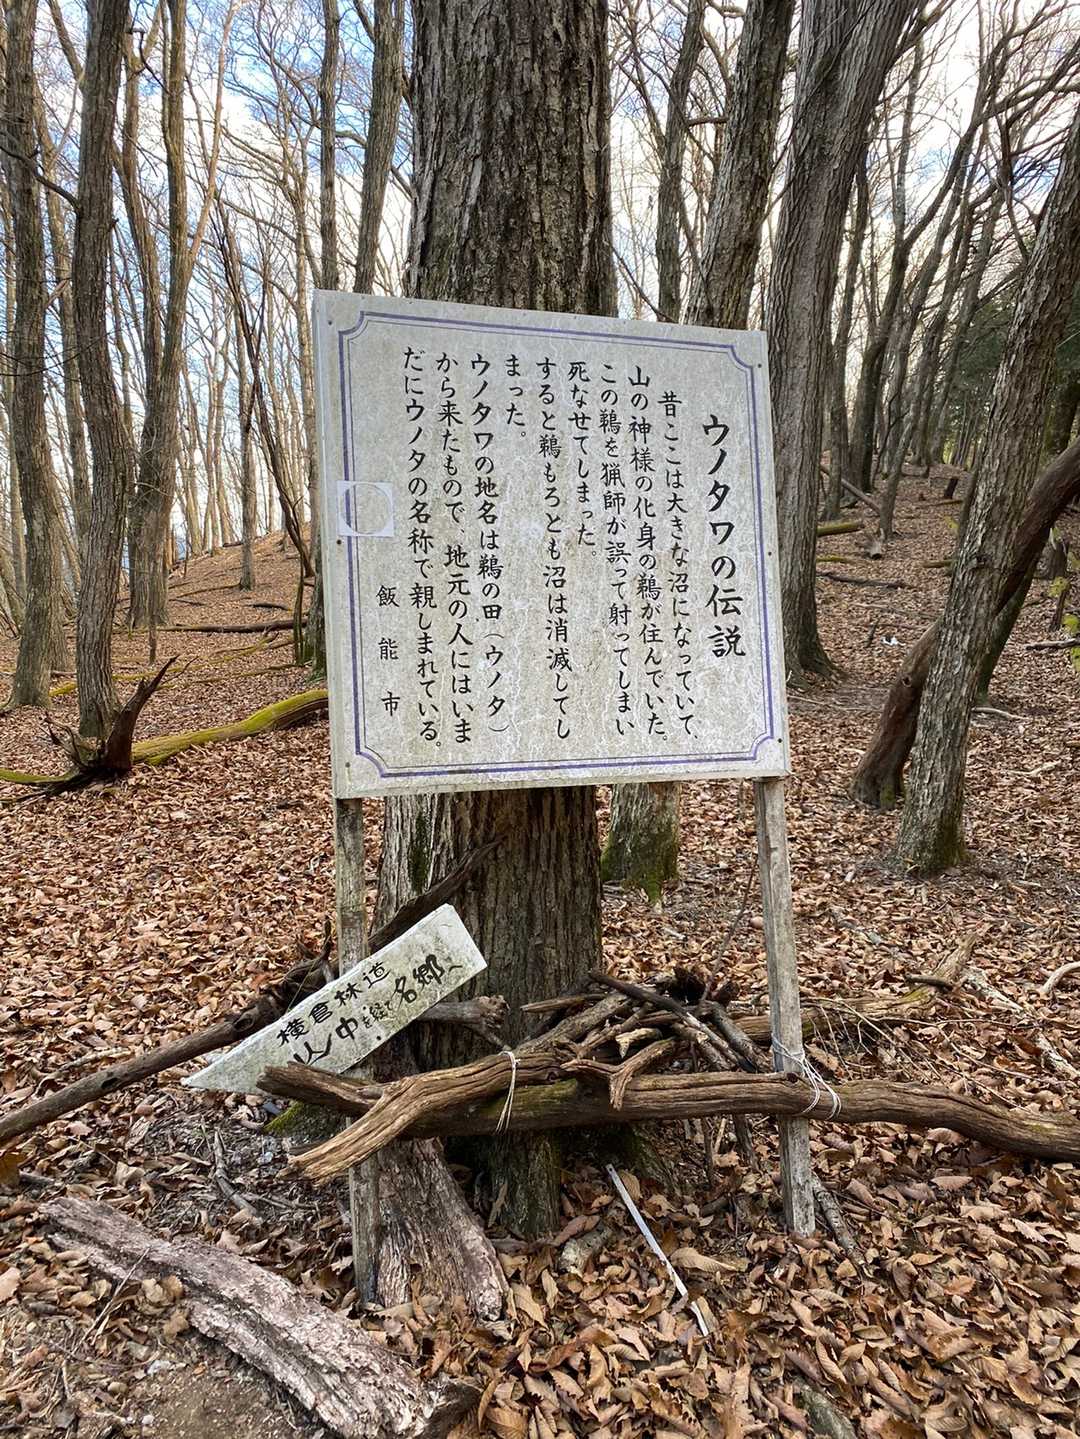 ウノタワの伝説
昔ここは大きな沼になっていて、
山の神様の化身の鵜が住んでいた。
この鵜を猟師が誤って射ってしまい
死なせてしまった。
すると鵜もろとも沼は消滅してし
まった。
ウノタワの地名は鵜の田（ウノタ）
から来たもので、地元の人にはいま
だにウノタの名称で親しまれている。
飯能市
横倉林道
山中を経て名郷へ